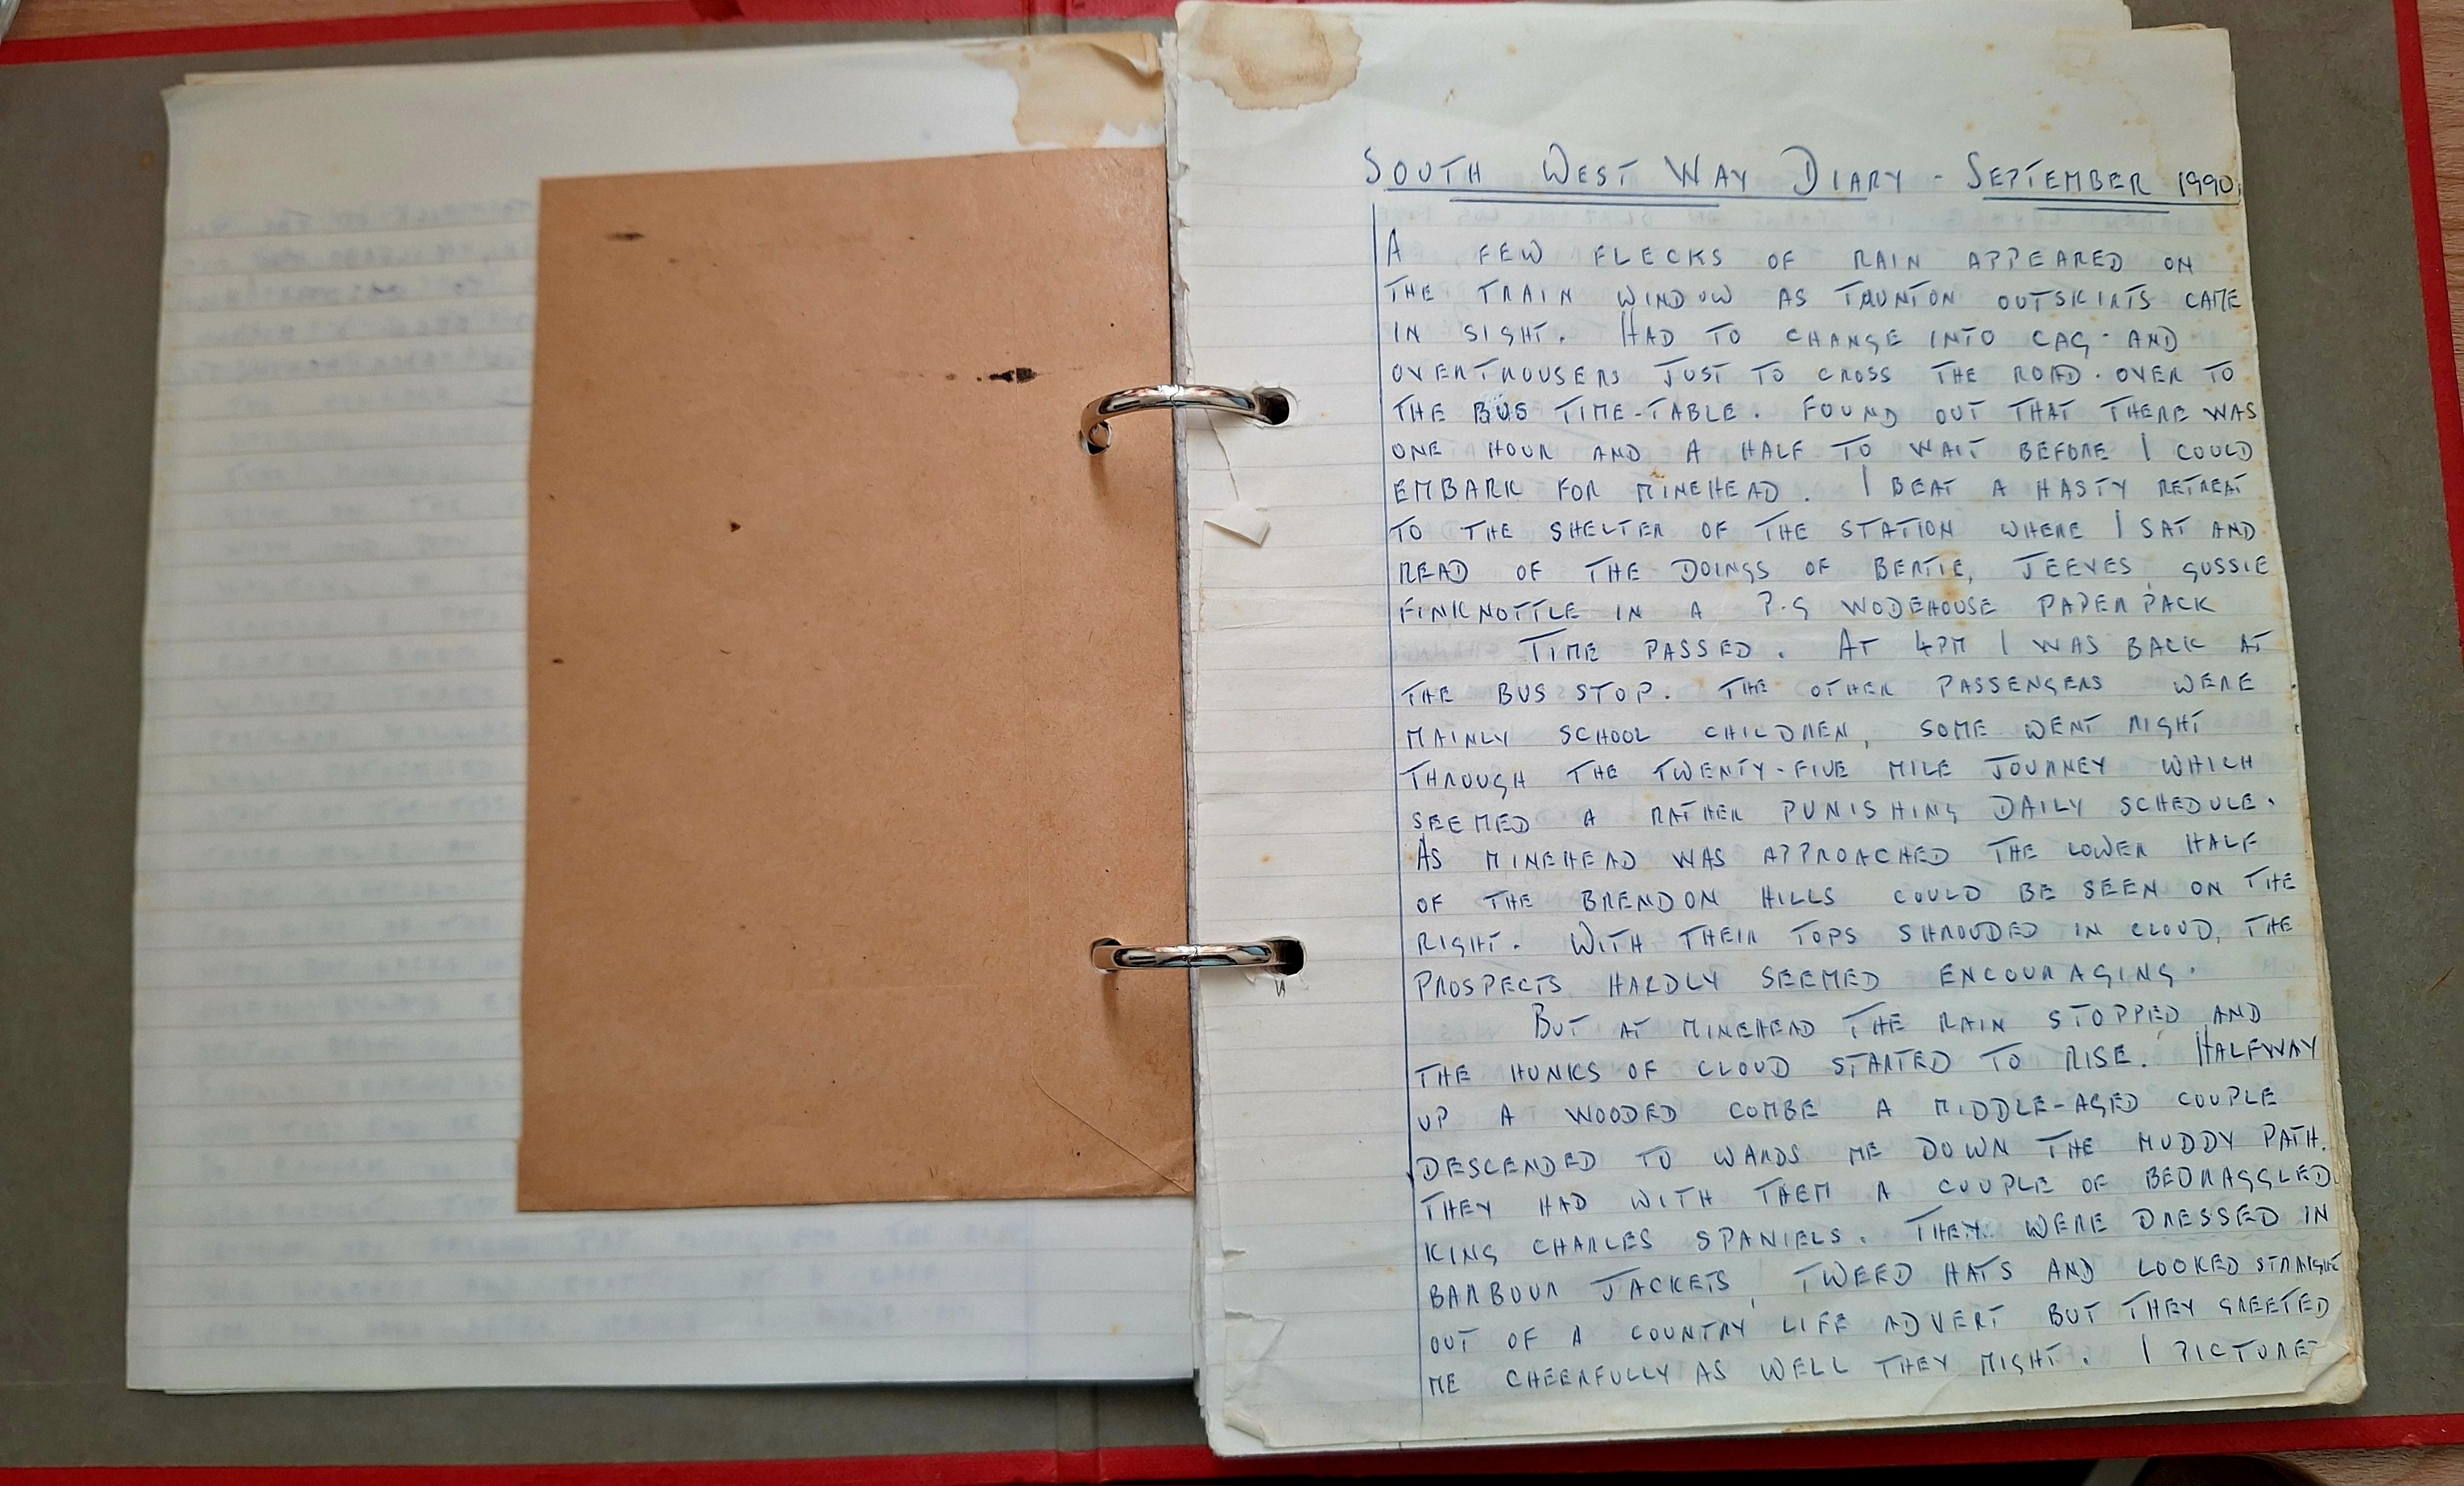 SOUTH WEST WAY DIARY - SEPTEMBER 1990.
A FEW FLECKS OF RAIN APPEARED ON
THE TRAIN WINDOW AS TAUNTON OUTSKIRTS CAME
IN SIGHT. HAD TO CHANGE INTO CAG AND
OVERTROUSERS JUST TO CROSS THE ROAD. OVER TO
THE BUS TIME-TABLE. FOUND OUT THAT THERE WAS
ONE HOUR AND A HALF TO WAIT BEFORE I COULD
EMBARK FOR MINEHEAD. I BEAT A HASTY RETREAT
TO THE SHELTER OF THE STATION WHERE I SAT AND
READ OF THE DOINGS OF BERTIE, JEEVES, GUSSIE
FINKNOTTLE IN A P.G WODEHOUSE PAPER PACK
TIME PASSED. AT 4PM I WAS BACK AT
THE BUS STOP. THE OTHER PASSENGERS WERE
MAINLY SCHOOL CHILDREN, SOME WENT RIGHT
THROUGH THE TWENTY-FIVE MILE JOURNEY WHICH
SEEMED A RATHER PUNISHING DAILY SCHEDULE.
AS MINEHEAD WAS APPROACHED THE LOWER HALF
OF THE BRENDON HILLS COULD BE SEEN ON THE
RIGHT. WITH THEIR TOPS SHROUDED IN CLOUD, THE
PROSPECTS HARDLY SEEMED ENCOURAGING.
BUT AT MINEHEAD THE RAIN STOPPED AND
THE HUNKS OF CLOUD STARTED TO RISE. HALFWAY
UP A WOODED COMBE A MIDDLE-AGED COUPLE
DESCENDED TO WARDS ME DOWN THE MUDDY PATH.
THEY HAD WITH THEM A COUPLE OF BEDRAGGLED
KING CHARLES SPANIELS. THEY WERE DRESSED IN
BARBOUR JACKETS, TWEED HATS AND LOOKED STRAIGHT
OUT OF A COUNTRY LIFE ADVERT BUT THEY GREETED
ME CHEERFULLY AS WELL THEY MIGHT. I PICTURE